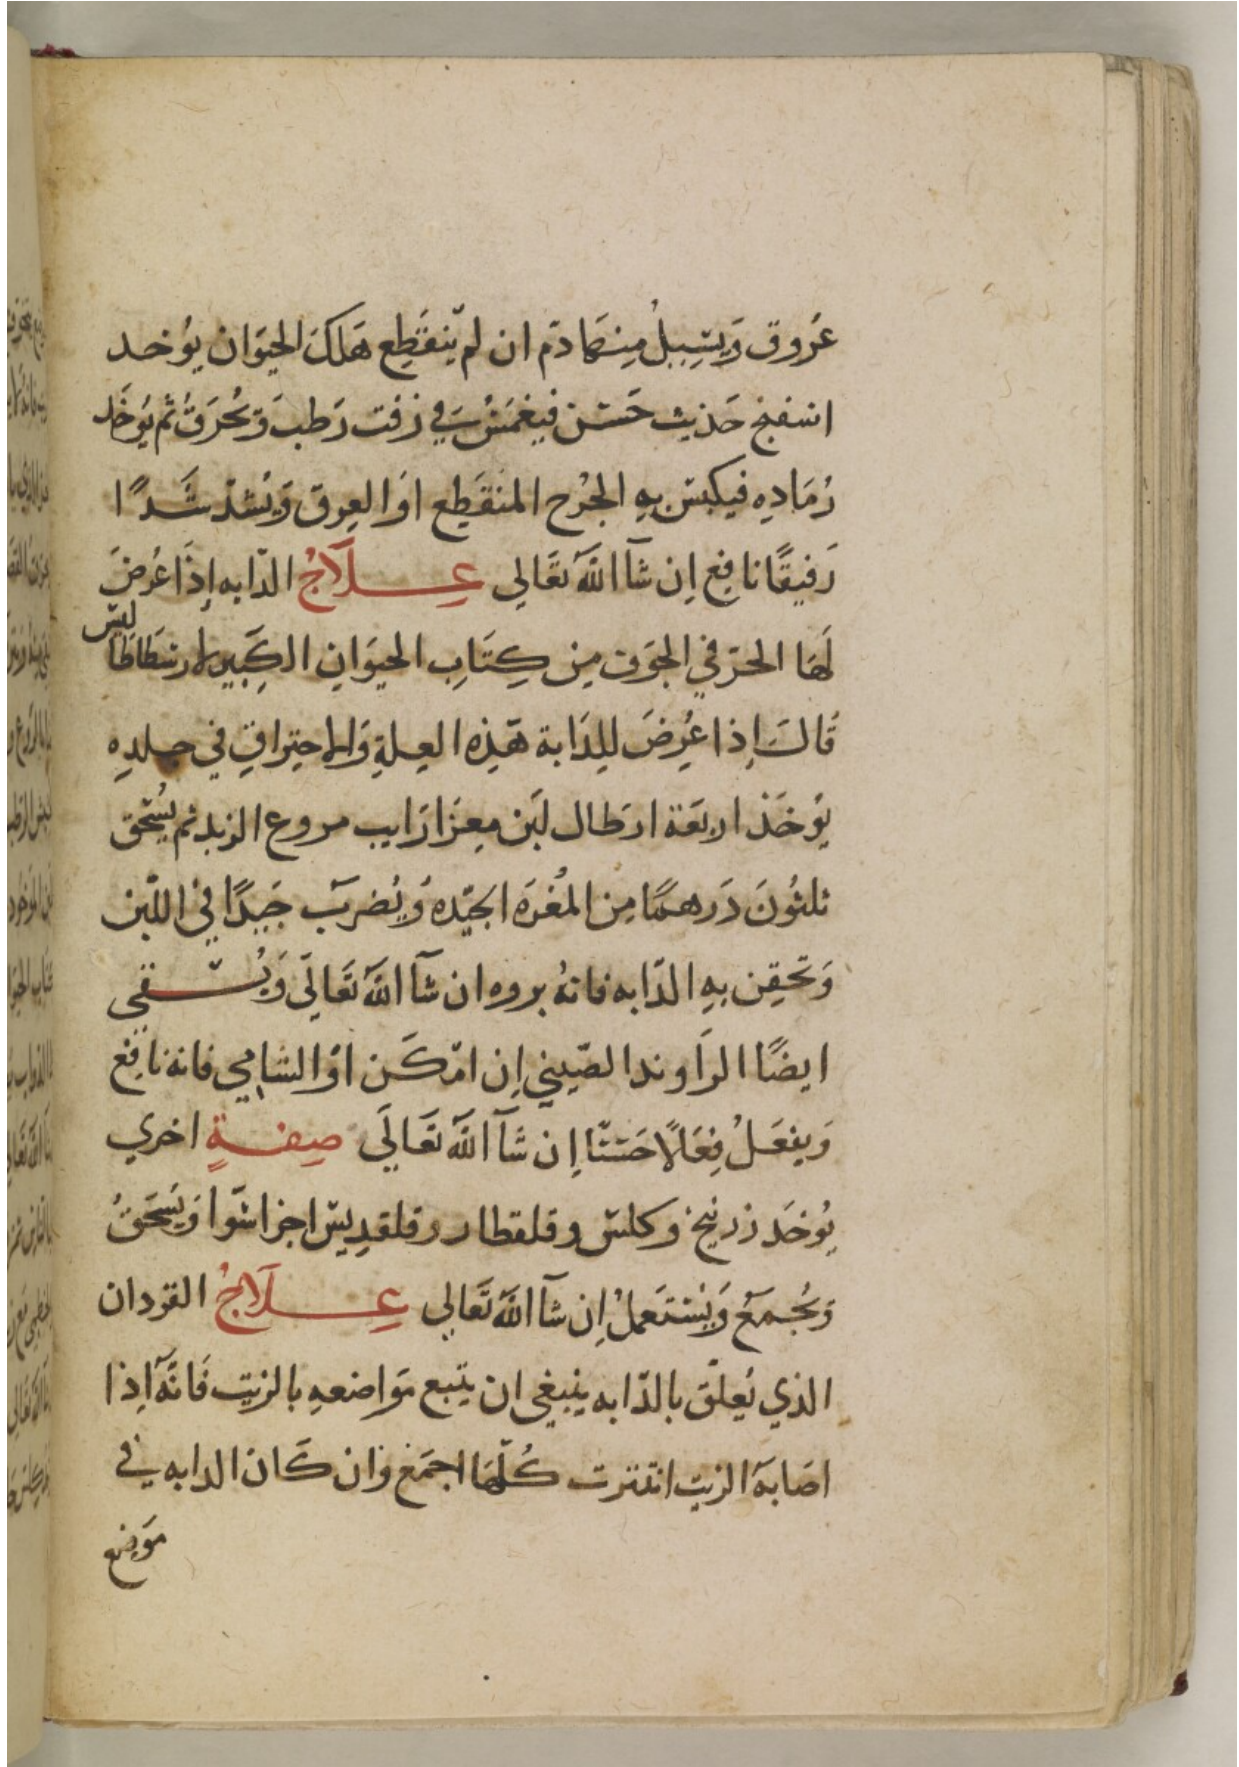 عَروق وَيَسِيلُ مِنهَا دَم ان لم يَنقَطِع هَلَكَ الحيَوَان يوُخد
اسفنج حَديث حَسَن فيغمَسُ في زفت رَطب وَيُحرَقُ ثم يوُخَد
رُمَادِه فيكبسَ بِهِ الجُرْح المنقَطِع اوَ العِرق وَيُشدّ شَدًا
رَفيقًا نافِع اِن شآ اللَّه تعَالي عِلَاجُ الدّابه إذَا عُرِضَ
لَهَا الحرّ في الجوَف مِن كِتَابِ الحيوَانِ الكَبِير لارسَطَاطَاليسَ
قَالَ اِذا عُرِضَ لِلدَابة هَذِه العِلةِ وَالاحتِراقِ في جلدِه
يوُخَذ اربعَة ارطال لبَن مِعزَا رَايب مروع الزبد ثم يُسْحَق
ثلثُونَ دَرهمًا مِن المُغرَه الجيّده وَيُضرَب جَيدًا في اللّبن
وَتحقِن بِهِ الدّابه فانهُ بروه ان شآ اللَّه تعَالَي وَيُسقي
ايضًا الرَاوند الصّيني اِن امكَن اوَ الشامي فانه نافِع
وَيفعَلُ فِعَلًا حَسَنًا اِن شآ اللَّه تعَالَي صِفةٍ اخري
يوُخَد زرنيخ وكلس وقلقطار وقلقدِيس اجزا سَوا وَيُسحَقُ
وَيُجمَعُ وَيُسْتَعملُ اِن شآ اللَّه تعَالي عِلَاجُ القردان
الذي يُعلّق بالدّابه ينبغي ان يتبع مَوَاضعهِ بالزيت فَانّهَ اِذا
اصَابهَ الزيت انتثرت كُلّهَا اجمَع وَان كَان الدابه في
مَوَضِع